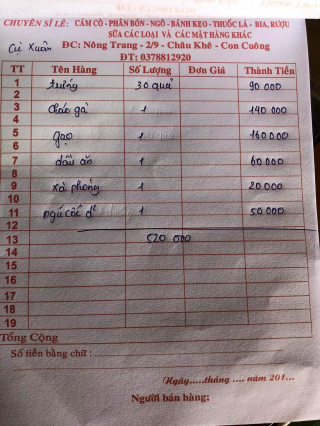 CHUYÊN SỈ LẺ: CÁM CÒ - PHÂN BÓN - NGÔ - BÁNH KẸO - THUỐC LÁ - BIA, RƯỢU
SỮA CÁC LOẠI VÀ CÁC MẶT HÀNG KHÁC
Cụ Xuân
ĐC: Nông Trang - 2/9 - Châu Khê - Con Cuông
ĐT: 0378812920
TT Tên Hàng Số Lượng Đơn Giá Thành Tiền
1 trứng 30 quả 90 000
2
3 cháo gà 1 140 000
4
5 gạo 1 160 000
6
7 dầu ăn 1 60 000
8
9 xà phòng 1 20 000
10
11 ngũ cốc dế 1 50 000
12
13 520 000
14
15
16
17
18
19
Tổng Cộng
Số tiền bằng chữ :
Ngày.....tháng .... năm 201...
Người bán hàng;